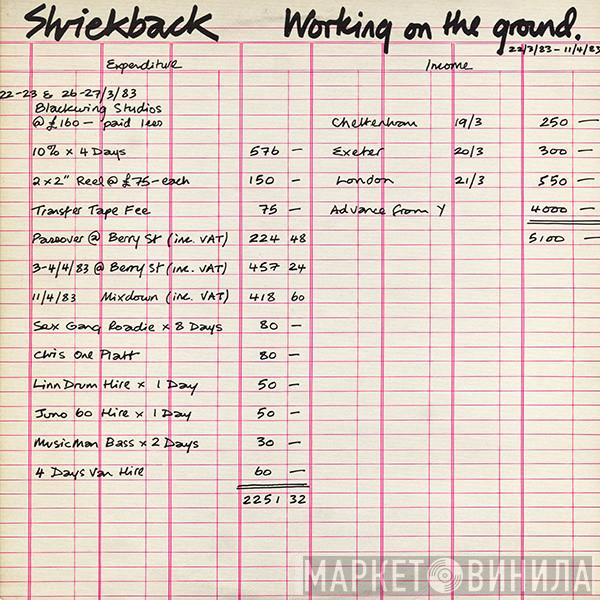 Shriekback Working on the ground.
22/3/83 – 11/4/83
Expenditure Income
22-23 & 26-27/3/83
Blackwing Studios
@ £160 – paid less Cheltenham 19/3 250 —
10% x 4 Days 576 — Exeter 20/3 300 —
2 x 2" Reel @ £75 - each 150 — London 21/3 550 —
Transfer Tape Fee 75 — Advance from Y 4000 —
Passover @ Berry St (inc. VAT) 224 48 5100 —
3-4/4/83 @ Berry St (inc. VAT) 457 24
11/4/83 Mixdown (inc. VAT) 418 60
Sex Gang Roadie x 8 Days 80 —
Chris One Platt 80 —
Linn Drum Hire x 1 Day 50 —
Juno 60 Hire x 1 Day 50 —
MusicMan Bass x 2 Days 30 —
4 Days Van Hire 60 —
2251 32
МАРКЕТ ВИНИЛА